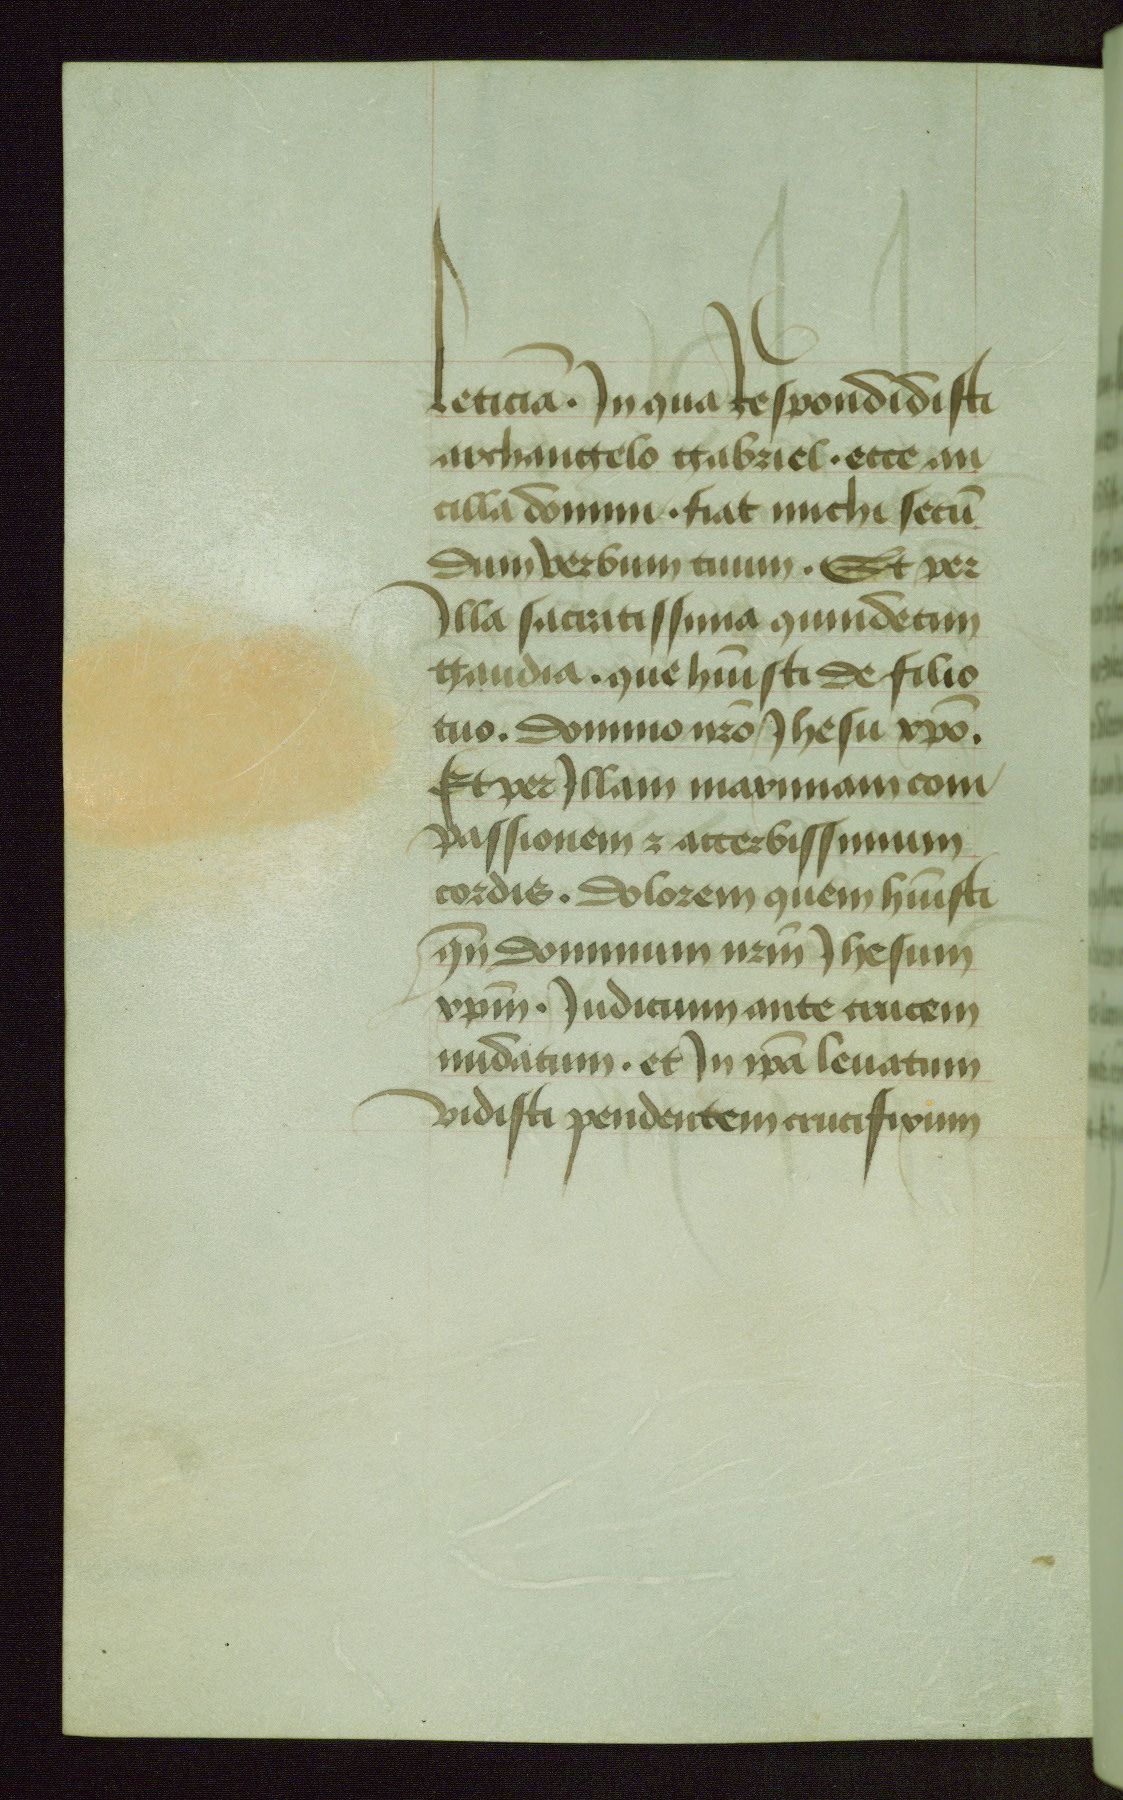 leticiā. In qua respondidisti
archangelo gabriel. ecce an
cilla domini. fiat michi secū
dum verbum tuum. Et per
Illa sacratissima quindecim
gaudia. que hūisti de filio
tuo. domino nr̄o Jhesu xp̄o.
Et per Illam maximam com
passionem ⁊ accerbissimum
cordis. dolorem quem hūisti
qn̄ dominum nrm̄ Jhesum
xpm̄. Judicium ante crucem
nudatum. et In ip̄a levatum
vidisti pendentem crucifixum